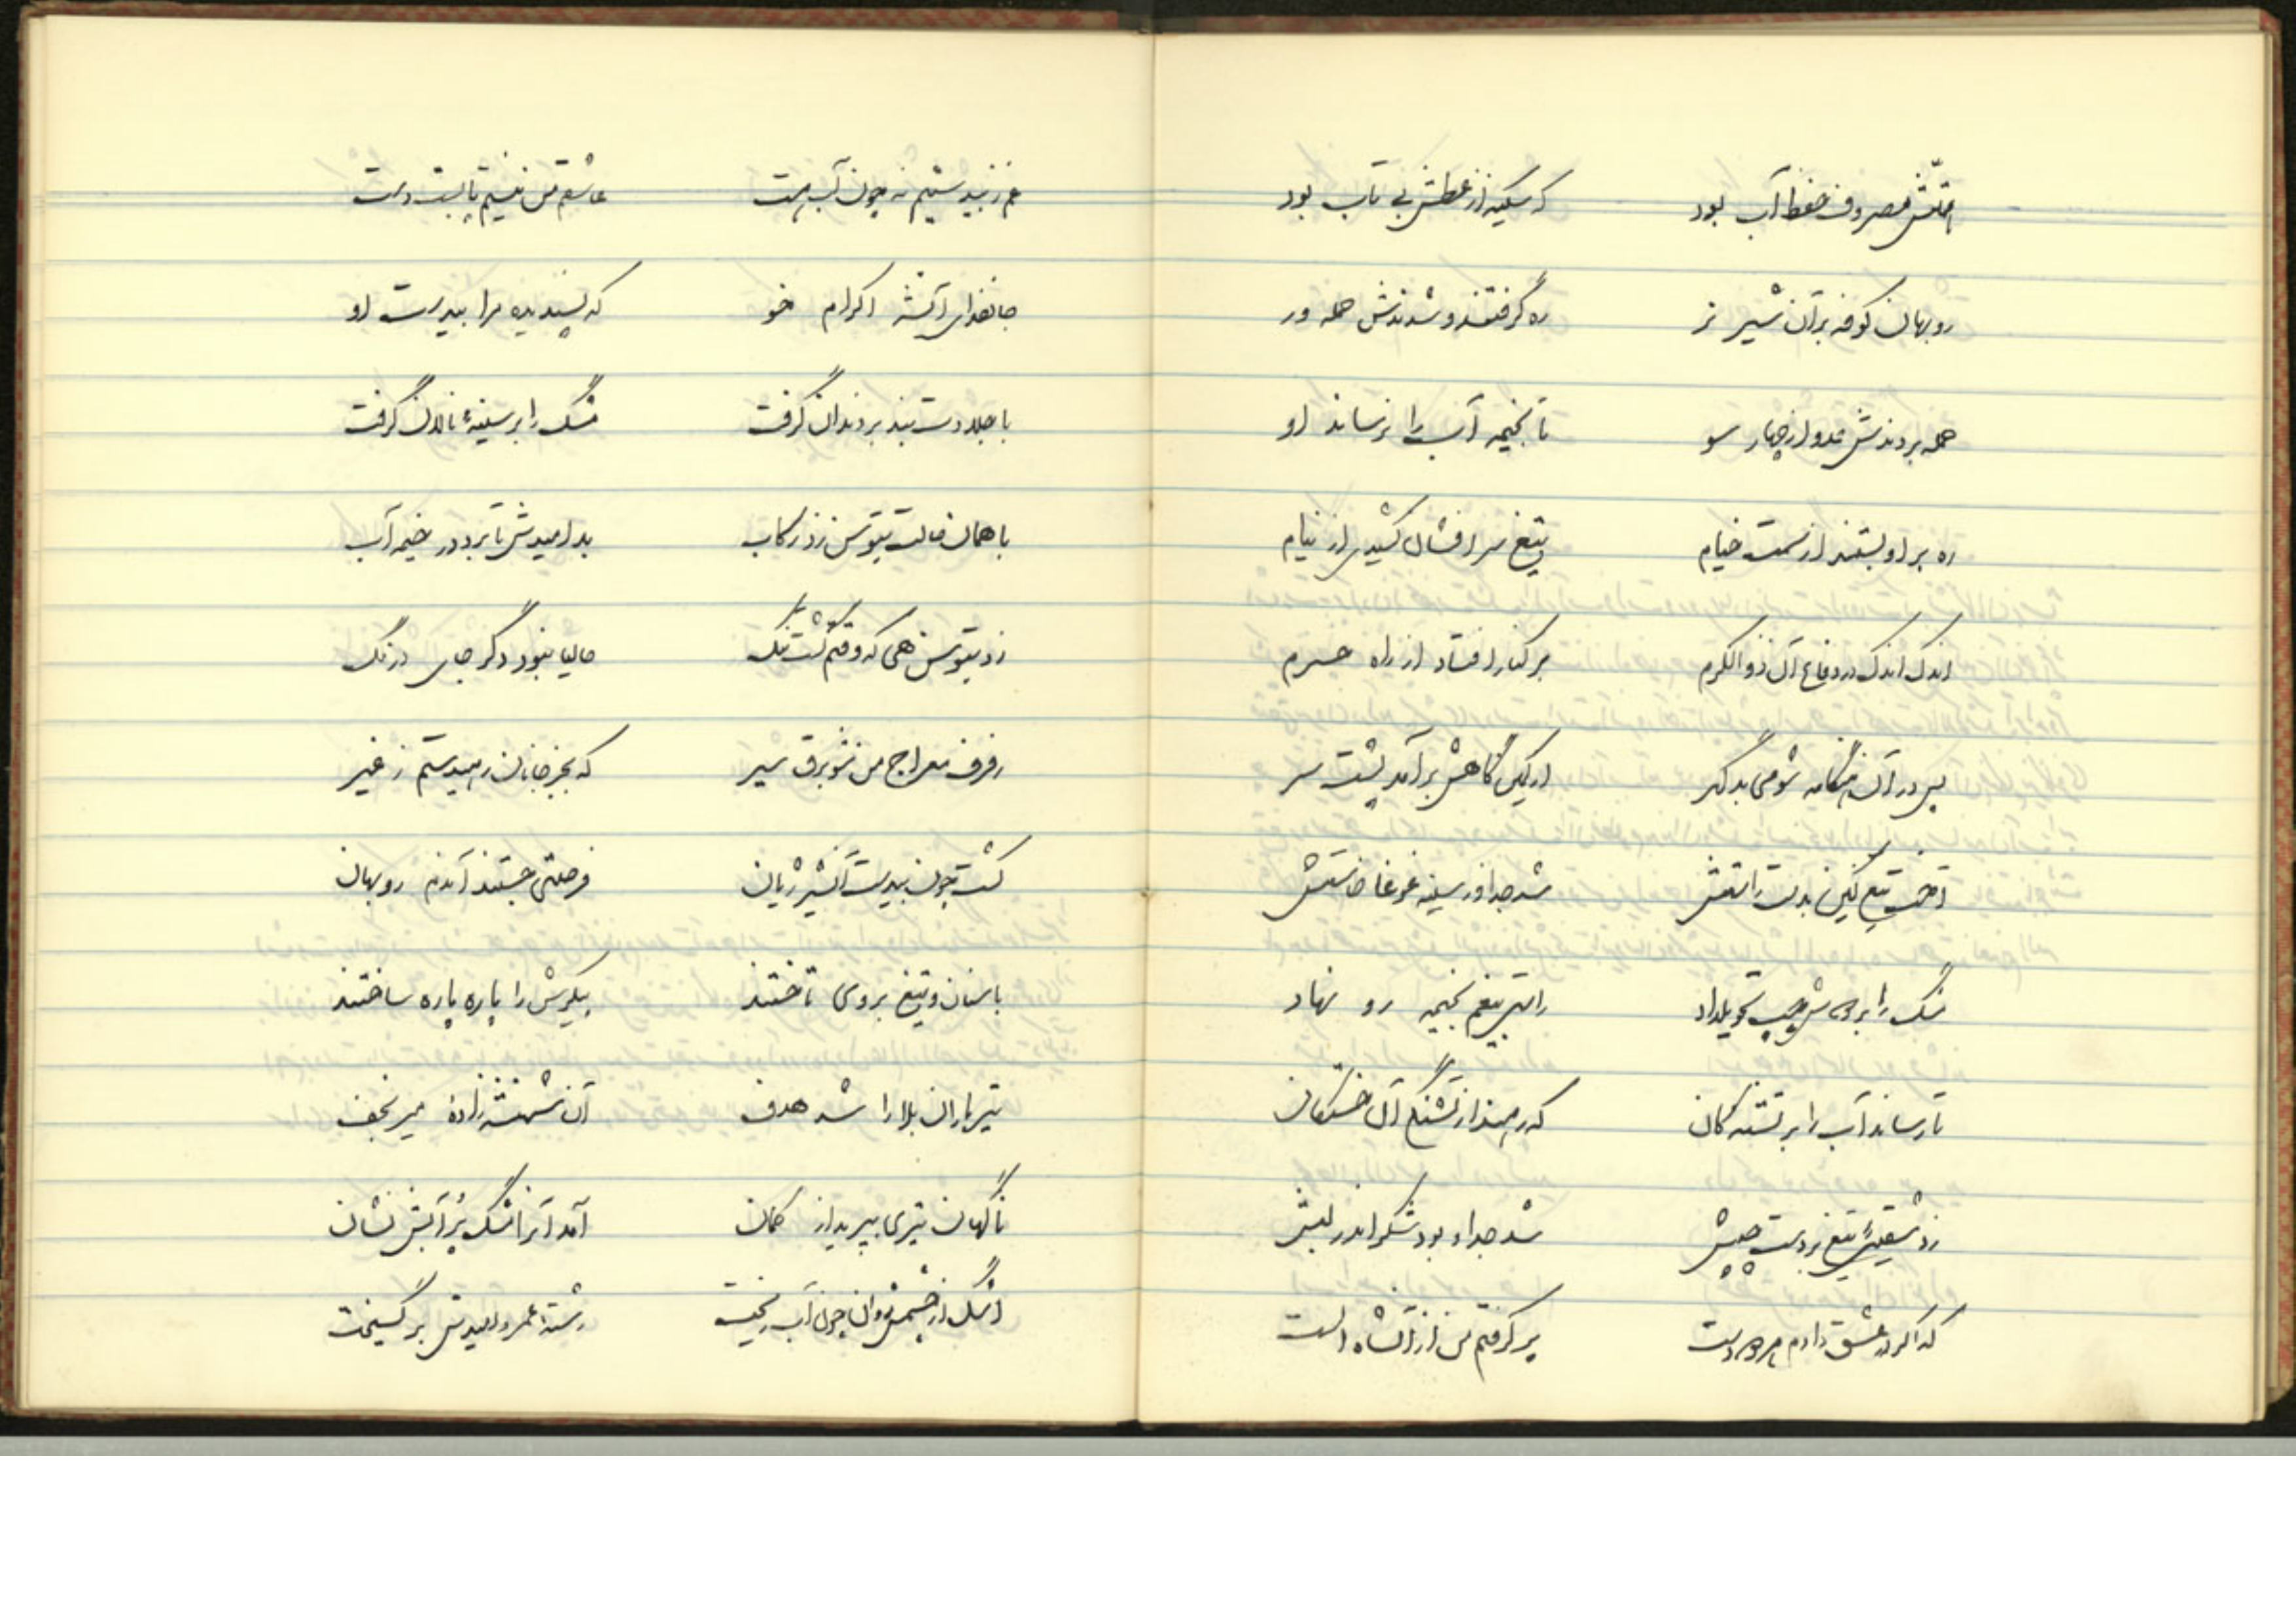 همّتش مصروف حفظ آب بود که سکینه از عطش بی تاب بود
روبهان کوفه بر آن شیر نر ره گرفتند و شدندش حمله ور
حمله بردندش عدو از چهار سو تا بخیمه آب را نرساند او
ره بر او بستند از سمت خیام تیغ سر افشان کشیدی از نیام
اندک اندک در دفاع آن ذو الکرم بر کنار افتاد از راه حرم
پس در آن هنگامه شومی بد گهر از کمین گاهش برآمد پشت سر
آخت تیغ کین بدست راستش شد جدا وز سینه غوغا خاستش
مشک را بر دوش چپ تحویلداد راستی بیغم بخیمه رو نهاد
تا رساند آب را بر تشنه کان که رهند از تشنگی آن خستگان
زد شقیئی تیغ بر دست چپش شد جدا و بود شکر اندر لبش
که اگر در عشق دادم هر دو دست پر گرفتم من از آنشاه الست
غم ز بیدستیم نه چون آب هست عاشقم من نیستم پابست دست
جانفدای آنشه اکرام خو که پسندیده مرا بیدست او
با جلادت بند بر دندان گرفت مشک را بر سینهٔ نالان گرفت
با همان حالت بتوسن زد رکاب بد امیدش تا برد در خیمه آب
زد بتوسن هی که وقتم گشت تنگ حالیا نبود دگر جای درنگ
رفرف معراج من شو برق سیر که بجز جانان رهیدستم ز غیر
گشت چون بیدست آنشیر ژیان فرصتی جستند آندم روبهان
با سنان و تیغ بروی تاختند پیکرش را پاره پاره ساختند
تیر باران بلا را شد هدف آن شهنشه زادهٔ میر نجف
ناگهان تیری بپرید از کمان آمد آنرا مشک پُر آبش نشان
اشک از چشمش روان چون آب ریخت رشتهٔ عمر و امیدش بر گسیخت